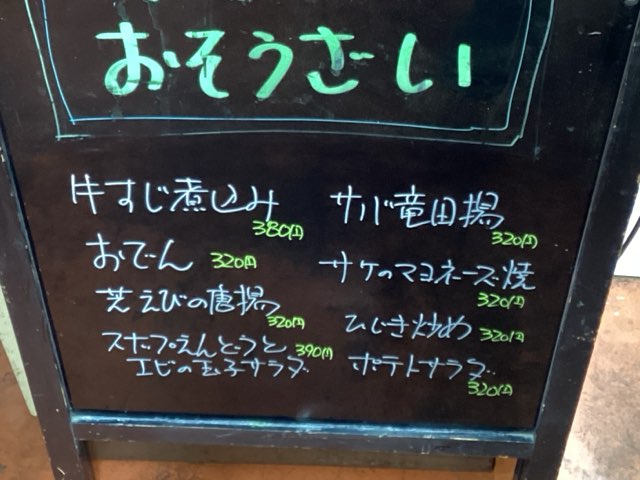 おそうざい
牛すじ煮込み
380円
おでん 320円
芝えびの唐揚
320円
スナップえんどうと 390円
エビの玉子サラダ
サバ竜田揚
320円
サケのマヨネーズ焼
320円
ひじき炒め 320円
ポテトサラダ
320円